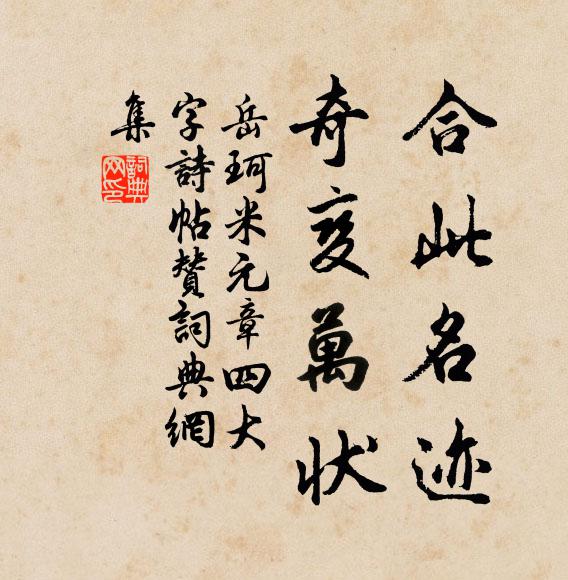 合此名迹
奇变萬状
岳珂米元章四大
字詩帖赞詞典網
集
詞典
网印